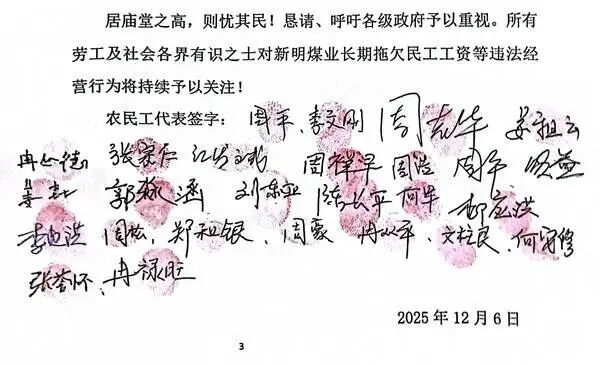 居庙堂之高，则忧其民！恳请、呼吁各级政府予以重视。所有
劳工及社会各界有识之士对新明煤业长期拖欠民工工资等违法经
营行为将持续予以关注！
农民工代表签字：周平、李文刚 周志华 姜祖云
张宗仁 周祥平 周浩 周平
郭淼涵 刘东亚 张长平 何华 郝应洪
周松、郑和银、周豪 冉从平、文柱民、何守修
张誉怀、冉禄旺
2025年12月6日
3